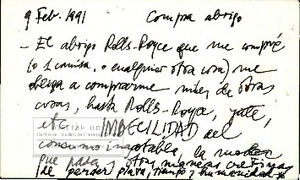 9 Feb. 1991 Compra abrigo
- El abrigo Rolls-Royce que me compré
(o 1 camisa, o cualquier otra cosa) me
obliga a comprarme miles de otras
cosas, hasta Rolls-Royce, yate,
etc IMBECILIDAD del
consumo inagotable, la
que pasa y otras maneras cretinas
de perder plata, tiempo y humanidad